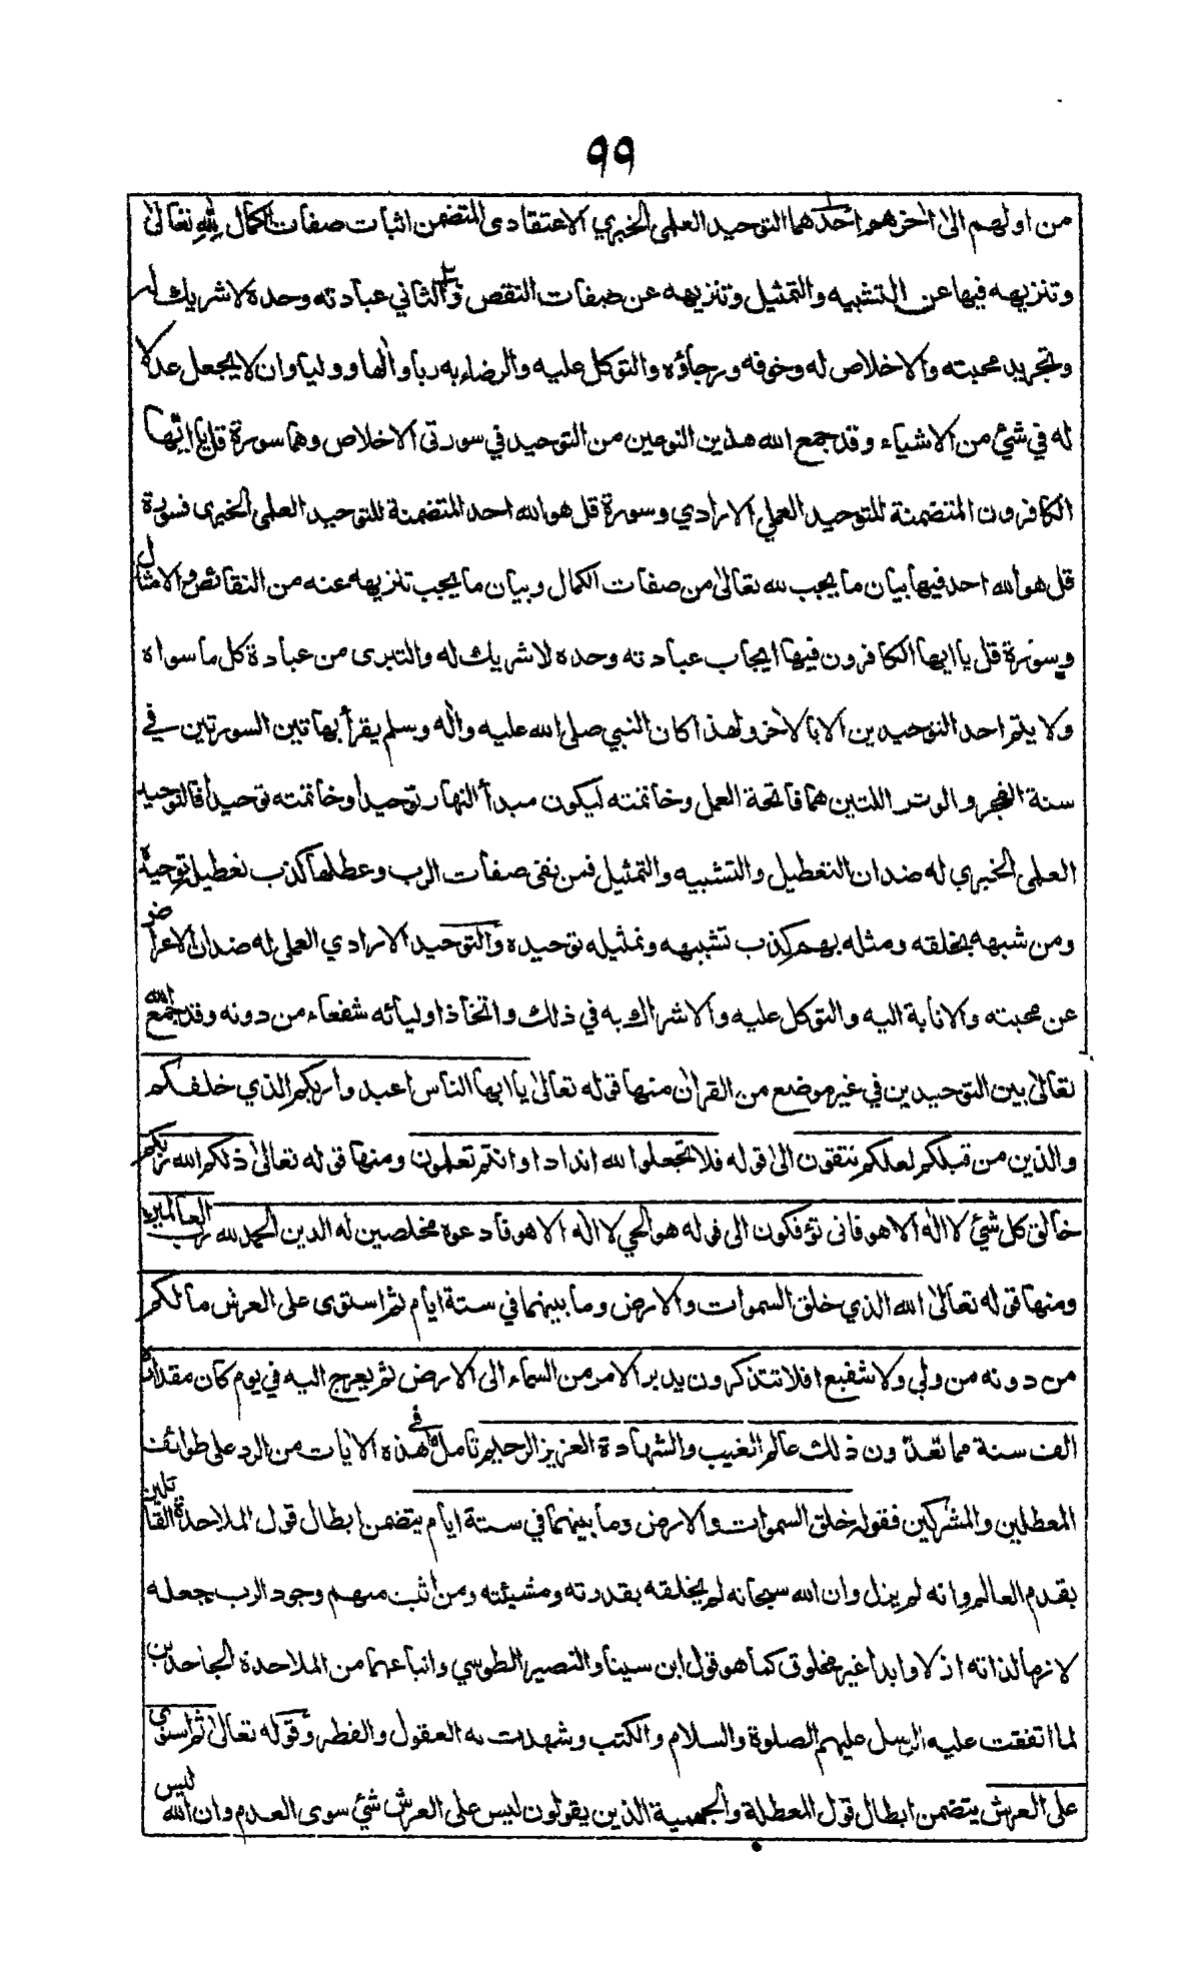 ٩٩
من اولهم الى اخرهم احدهما التوحيد العلمي الخبري الاعتقادى المتضمن اثبات صفات الكمال لله تعالى
وتنزيهه فيها عن التشبيه والتمثيل وتنزيهه عن صفات النقص والثاني عبادته وحده لا شريك له
وتجريد محبته والاخلاص له وخوفه ورجاؤه والتوكل عليه والرضاء به ربا والها ووليا وان لا يجعل عدلا
له في شئ من الاشياء وقد جمع الله هذين النوعين من التوحيد في سورتى الاخلاص وهما سورة قل يا ايها
الكافرون المتضمنة للتوحيد العملي الارادي وسورة قل هو الله احد المتضمنة للتوحيد العلمي الخبرى فسورة
قل هو الله احد فيها بيان ما يجب لله تعالى من صفات الكمال وبيان ما يجب تنزيهه عنه من النقائص والامثال
وسورة قل يا ايها الكافرون فيها ايجاب عبادته وحده لا شريك له والتبرى من عبادة كل ما سواه
ولا يتم احد التوحيدين الا بالاخر ولهذا كان النبي صلى الله عليه واله وسلم يقرأ بهاتين السورتين في
سنة الفجر والوتر اللتين هما فاتحة العمل وخاتمته ليكون مبدأ النهار توحيدا وخاتمته توحيدا فالتوحيد
العلمي الخبري له ضدان التعطيل والتشبيه والتمثيل فمن نفى صفات الرب وعطلها كذب تعطيله توحيده
ومن شبهه بخلقه ومثله بهم كذب تشبيهه وتمثيله توحيده والتوحيد الارادي العملي له ضدان الاعراض
عن محبته والانابة اليه والتوكل عليه والاشراك به في ذلك واتخاذ اوليائه شفعاء من دونه وقد جمع الله
تعالى بين التوحيدين في غير موضع من القران منها قوله تعالى يا ايها الناس اعبدوا ربكم الذي خلقكم
والذين من قبلكم لعلكم تتقون الى قوله فلا تجعلوا لله اندادا وانتم تعلمون ومنها قوله تعالى ذلكم الله ربكم
خالق كل شئ لا اله الا هو فانى تؤفكون الى قوله هو الحي لا اله الا هو فادعوه مخلصين له الدين الحمد لله رب العالمين
ومنها قوله تعالى الله الذي خلق السموات والارض وما بينهما في ستة ايام ثم استوى على العرش ما لكم
من دونه من ولي ولا شفيع افلا تتذكرون يدبر الامر من السماء الى الارض ثم يعرج اليه في يوم كان مقداره
الف سنة مما تعدون ذلك عالم الغيب والشهادة العزيز الرحيم تأمل ما في هذه الايات من الرد على طوائف
المعطلين والمشركين فقوله خلق السموات والارض وما بينهما في ستة ايام يتضمن ابطال قول الملاحدة القائلين
بقدم العالم وانه لم يزل وان الله سبحانه لم يخلقه بقدرته ومشيئته ومن اثبت منهم وجود الرب جعله
لازما لذاته ازلا وابدا غير مخلوق كما هو قول ابن سينا والنصير الطوسي واتباعهما من الملاحدة الجاحدين
لما اتفقت عليه الرسل عليهم الصلوة والسلام والكتب وشهدت به العقول والفطر وقوله تعالى ثم استوى
على العرش يتضمن ابطال قول المعطلة والجهمية الذين يقولون ليس على العرش شئ سوى العدم وان الله ليس